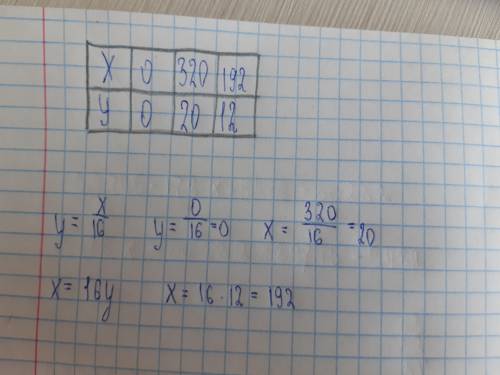 X 0 320 192
y 0 20 12
y = x/16 y = 0/16 = 0 x = 320/16 = 20
x = 16y x = 16 · 12 = 192